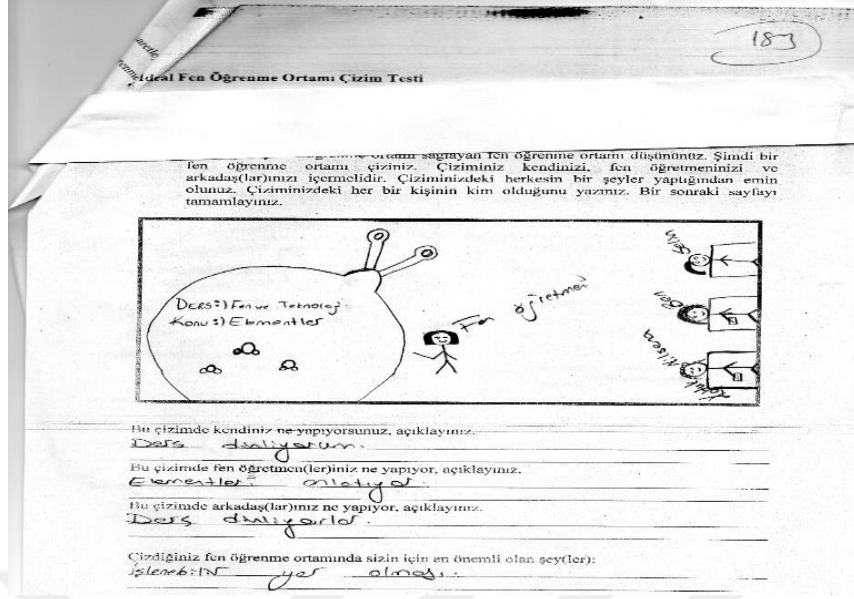 183
İdeal Fen Öğrenme Ortamı Çizim Testi
ortamı sağlayan fen öğrenme ortamı düşününüz. Şimdi bir
fen öğrenme ortamı çiziniz. Çiziminiz kendinizi, fen öğretmeninizi ve
arkadaş(lar)ınızı içermelidir. Çiziminizdeki herkesin bir şeyler yaptığından emin
olunuz. Çiziminizdeki her bir kişinin kim olduğunu yazınız. Bir sonraki sayfayı
tamamlayınız.
DERS:) Fen ve Teknoloji
Konu:) Elementler
Fen öğretmeni
Selin
Ben
Bu çizimde kendiniz ne yapıyorsunuz, açıklayınız.
Ders dinliyorum.
Bu çizimde fen öğretmen(ler)iniz ne yapıyor, açıklayınız.
Elementleri anlatıyor.
Bu çizimde arkadaş(lar)ınız ne yapıyor, açıklayınız.
Ders dinliyorlar.
Çizdiğiniz fen öğrenme ortamında sizin için en önemli olan şey(ler):
işlenebilir yer olması.